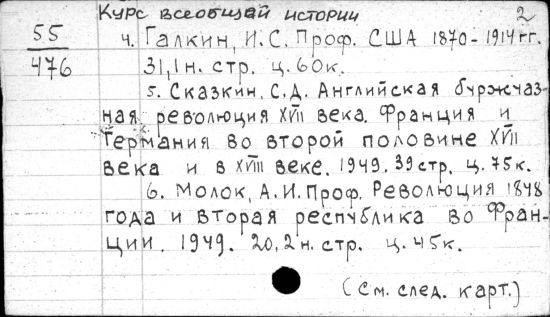 Курс всеобщей истории 2
55
476
4. Галкин, И.С. Проф. США 1870-1914гг.
31,1н. стр. ц. 60к.
5. Сказкин, С.Д. Английская буржуаз-
ная революция XVII века. Франция и
Германия во второй половине XVII
века и в XVIII веке. 1949. 39стр. ц. 75к.
6. Молок, А.И. Проф. Революция 1848
года и вторая республика во Фран-
ции. 1949. 20,2н. стр. ц. 45к.
(См. след. карт.)